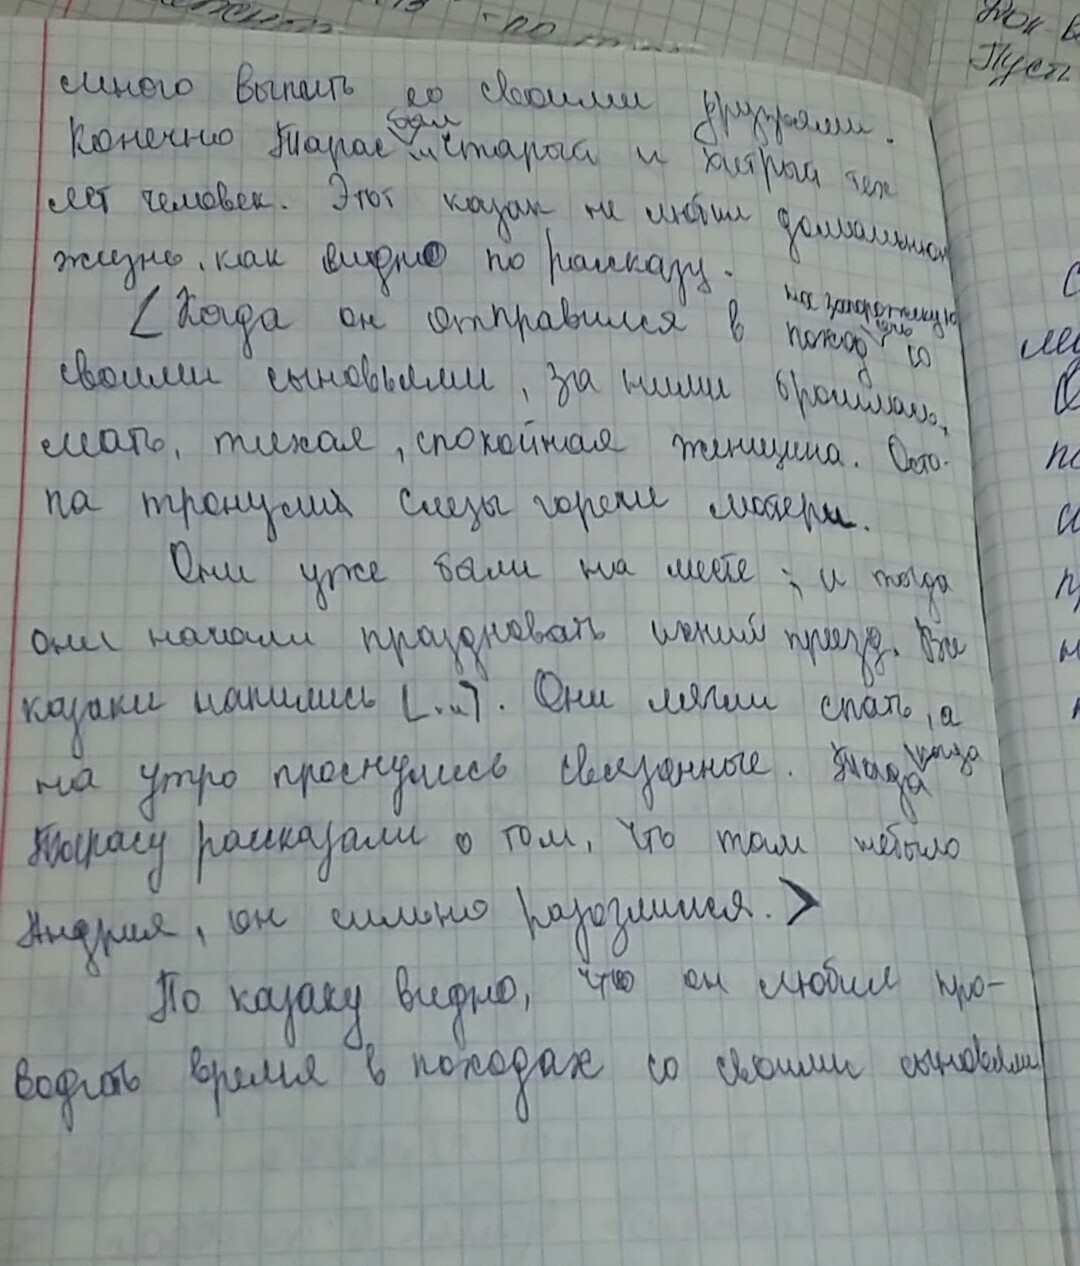 много выпить со своими друзьями.
Конечно Тарас был старый и хитрый тех
лет человек. Этот казак не любил домашнюю
жизнь, как видно по рассказу.
[Когда он отправился в поход на запорожскую сечь со
своими сыновьями, за ними бросилась,
мать, тихая, спокойная женщина. Оста-
па тронули слезы матери.
Они уже были на месте; и тогда
они начали праздновать приезд. Все
казаки напились [...]. Они легли спать, а
на утро проснулись связанные. когда
Тарасу рассказали о том, что там небыло
Андрия, он сильно разозлился.>
По казаку видно, что он любил про-
водить время в походах со своими сыновьями
Пуст